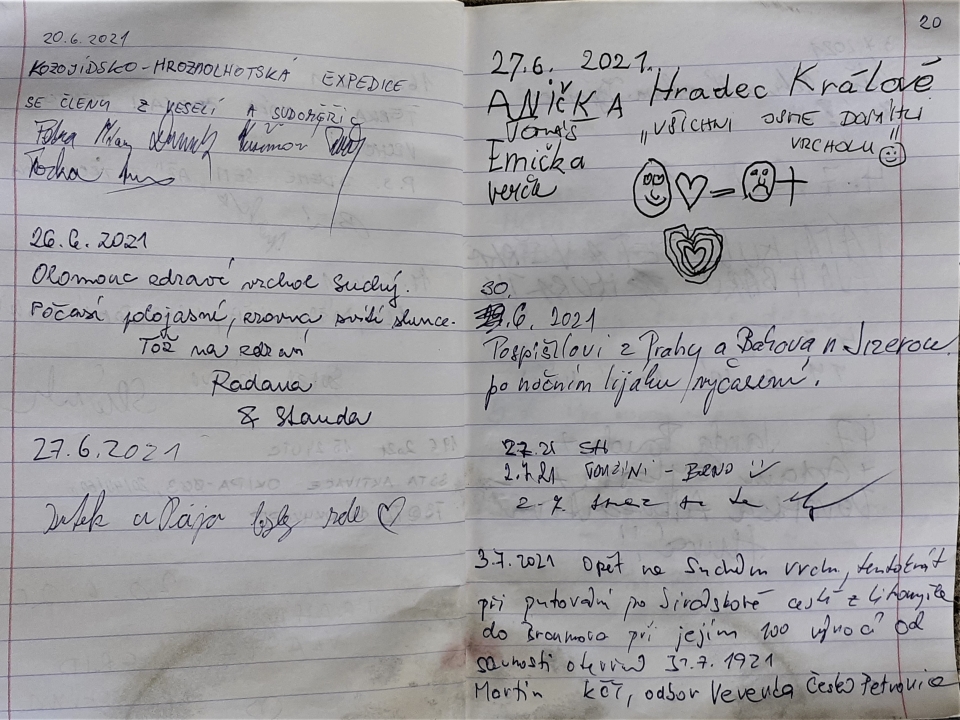 20.6.2021
KOZOJÍDSKO-HROZNOLHOTSKÁ EXPEDICE
SE ČLENY Z VESELÍ A SUDOMĚŘIC
26.6.2021
Olomouc zdraví vrchol Suchý.
Počasí polojasní, zrovna svítí slunce.
Tož na zdraví
Radana
& Standa
27.6.2021
a Pája byly zde
20
27.6. 2021.
ANIČKA Hradec Králové
Tomáš „VŠICHNI JSME DOBYLI
VRCHOLU"
Emička
Verča
30.
.6. 2021
Pospíšilovi z Prahy a Bakova n Jizerou
po nočním lijáku vyčasení.
27.21 SH
2.7.21 - BRNO
2-7
3.7.2021 Opět na Suchém vrchu, tentokrát
při putování po Jiráskově cestě z Litomyšle
do Broumova při jejím 100 výročí od
slavnosti otevření 3.7.1921
Martin odbor Česká Petrovice